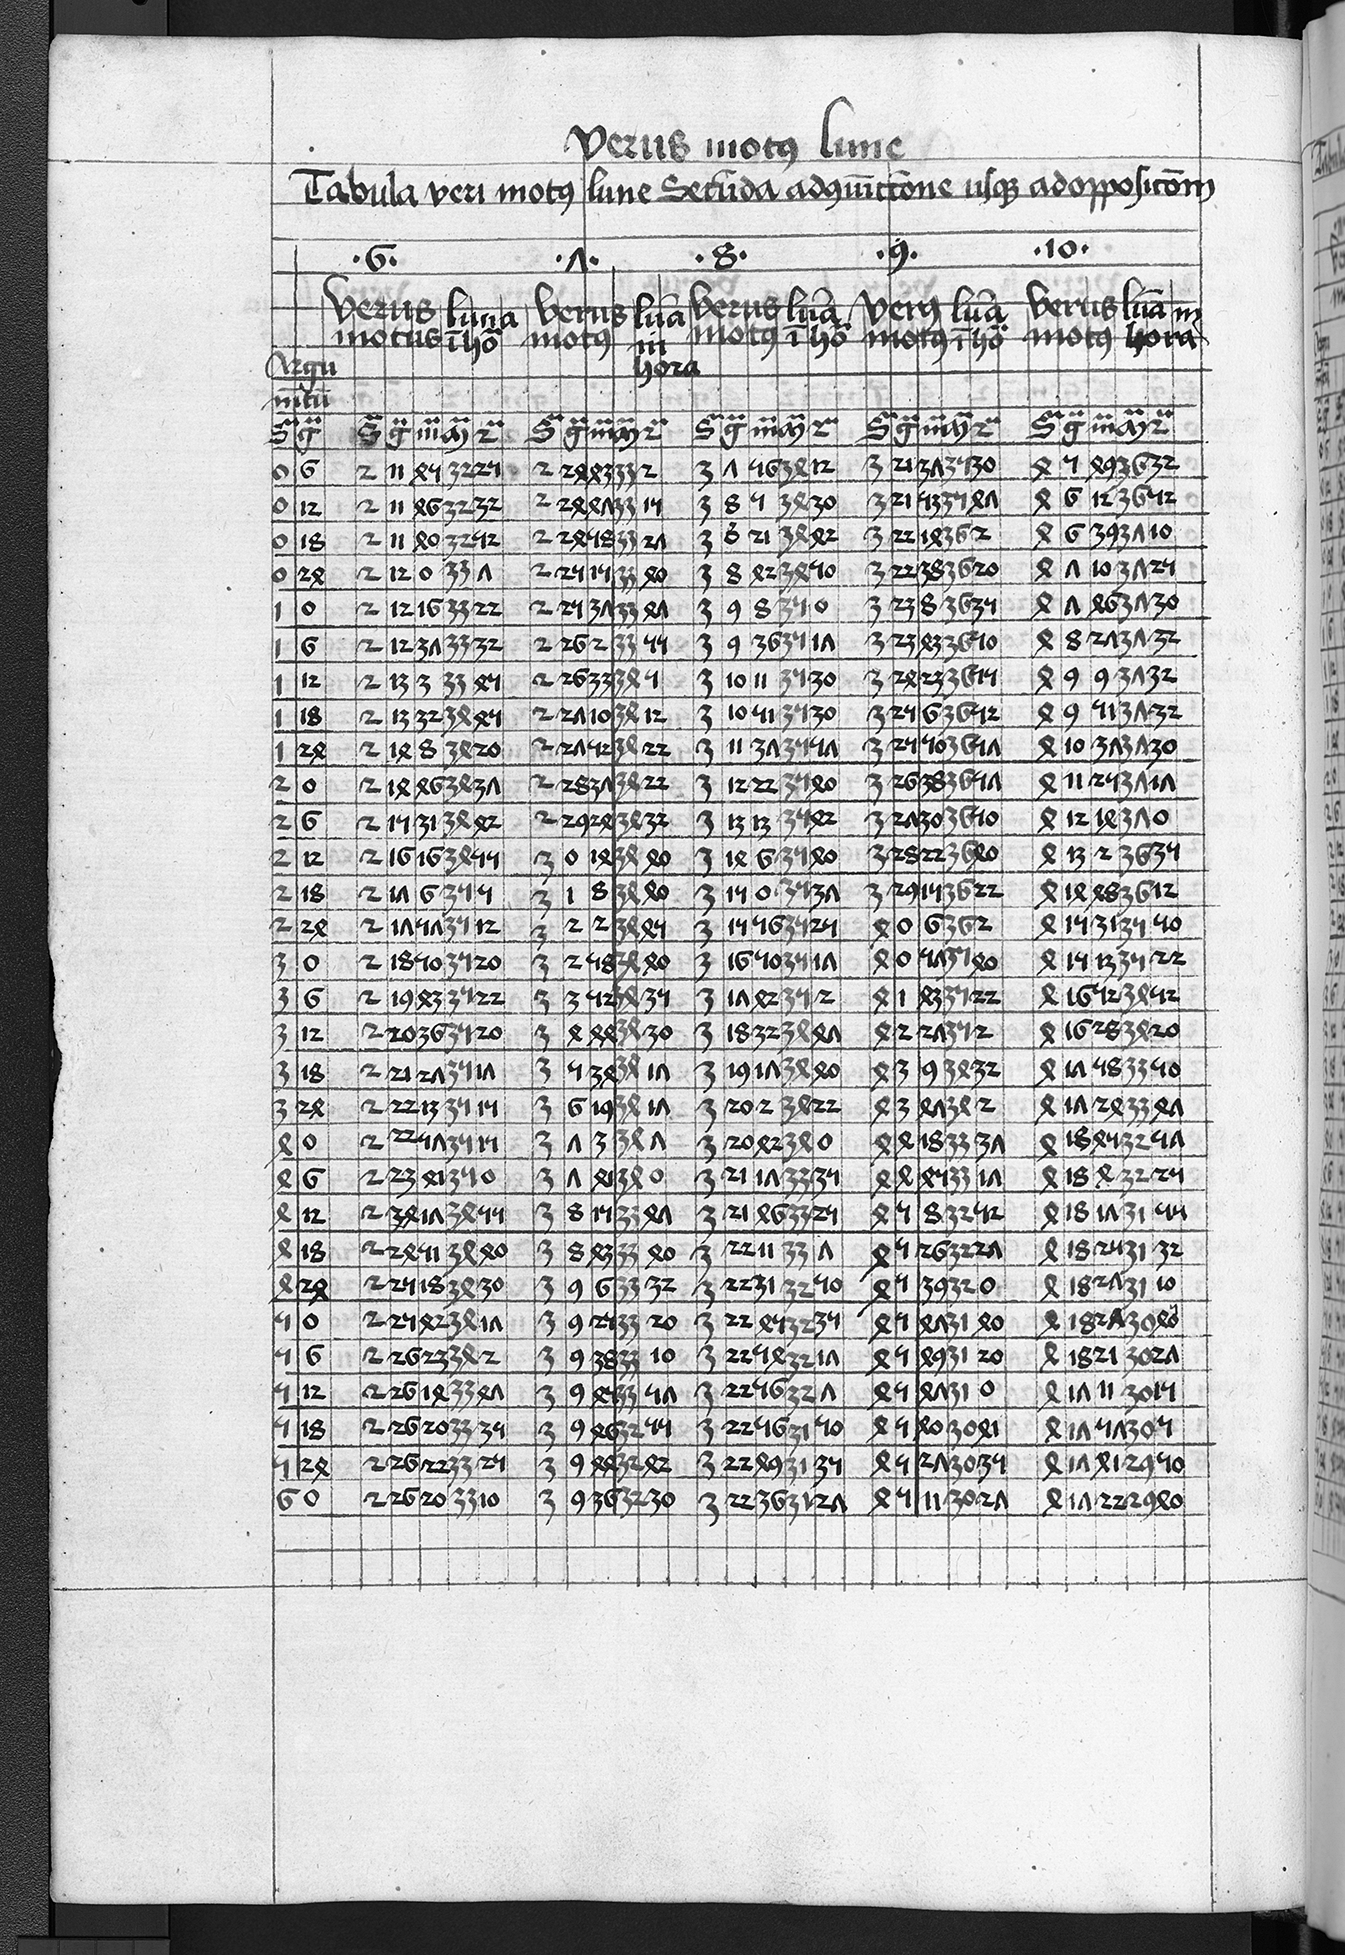 Verus motꝰ lune
Tabula veri motꝰ lune Secūda adꝯiūctiōne usqꝫ adopposicōm
·6· ·7· ·8· ·9· ·10·
Verus luna verus lūa verus lūa verꝰ lūa verus lūa in
motus ī ho motꝰ in motꝰ ī ho motꝰ ī ho motꝰ hora
Argu hora
mētū
S g S g m m 2 S g m m 2 S g m m 2 S g m m 2 S g m m 2
0 6 2 11 45 32 25 2 24 43 33 2 3 7 56 34 12 3 21 37 35 30 4 5 49 36 32
0 12 2 11 46 32 32 2 24 47 33 15 3 8 5 34 30 3 21 53 35 47 4 6 12 36 52
0 18 2 11 40 32 52 2 24 58 33 27 3 8 21 34 42 3 22 14 36 2 4 6 39 37 10
0 24 2 12 0 33 7 2 25 15 33 40 3 8 42 34 50 3 22 38 36 20 4 7 10 37 25
1 0 2 12 16 33 22 2 25 37 33 47 3 9 8 35 0 3 23 8 36 35 4 7 46 37 30
1 6 2 12 37 33 32 2 26 2 33 55 3 9 36 35 17 3 23 43 36 50 4 8 27 37 32
1 12 2 13 3 33 45 2 26 33 34 5 3 10 11 35 30 3 24 23 36 55 4 9 9 37 32
1 18 2 13 32 34 45 2 27 10 34 12 3 10 51 35 30 3 25 6 36 52 4 9 51 37 32
1 24 2 14 8 34 20 2 27 52 34 22 3 11 37 35 57 3 25 50 36 57 4 10 37 37 30
2 0 2 14 46 34 37 2 28 37 34 22 3 12 22 35 40 3 26 38 36 57 4 11 25 37 17
2 6 2 15 31 34 42 2 29 24 34 32 3 13 13 35 42 3 27 30 36 50 4 12 14 37 0
2 12 2 16 16 34 55 3 0 14 34 40 3 14 6 35 40 3 28 22 36 40 4 13 2 36 35
2 18 2 17 6 35 5 3 1 8 34 40 3 15 0 35 37 3 29 15 36 22 4 14 48 36 12
2 24 2 17 57 35 12 3 2 2 34 45 3 15 56 35 25 4 0 6 36 2 4 15 31 35 50
3 0 2 18 50 35 20 3 2 58 34 40 3 16 50 35 17 4 0 57 35 40 4 15 13 35 22
3 6 2 19 43 35 22 3 3 52 34 35 3 17 42 35 2 4 1 43 35 22 4 16 52 34 52
3 12 2 20 36 35 20 3 4 44 34 30 3 18 32 34 47 4 2 27 35 2 4 16 28 34 20
3 18 2 21 27 35 17 3 5 34 34 17 3 19 17 34 40 4 3 9 34 32 4 17 58 33 50
3 24 2 22 13 35 15 3 6 19 34 17 3 20 2 34 22 4 3 47 34 2 4 17 24 33 47
4 0 2 22 57 35 15 3 7 3 34 7 3 20 42 34 0 4 4 18 33 37 4 18 45 32 57
4 6 2 23 41 35 0 3 7 41 34 0 3 21 17 33 35 4 4 45 33 17 4 18 4 32 25
4 12 2 34 17 34 55 3 8 15 33 47 3 21 46 33 25 4 5 8 32 52 4 18 17 31 55
4 18 2 24 51 34 40 3 8 43 33 40 3 22 11 33 7 4 5 26 32 27 4 18 25 31 32
4 24 2 25 18 34 30 3 9 6 33 32 3 22 31 32 50 4 5 39 32 0 4 18 27 31 10
5 0 2 25 42 34 17 3 9 25 33 20 3 22 45 32 35 4 5 47 31 40 4 18 27 30 40
5 6 2 26 23 34 2 3 9 38 33 10 3 22 54 32 17 4 5 49 31 20 4 18 21 30 27
5 12 2 26 14 33 47 3 9 45 33 57 3 22 56 32 7 4 5 47 31 0 4 17 11 30 15
5 18 2 26 20 33 35 3 9 46 32 55 3 22 56 31 50 4 5 40 30 41 4 17 57 30 5
5 24 2 26 22 33 25 3 9 44 32 42 3 22 49 31 35 4 5 27 30 35 4 17 41 29 50
6 0 2 26 20 33 10 3 9 36 32 30 3 22 36 31 27 4 5 11 30 27 4 17 22 29 40